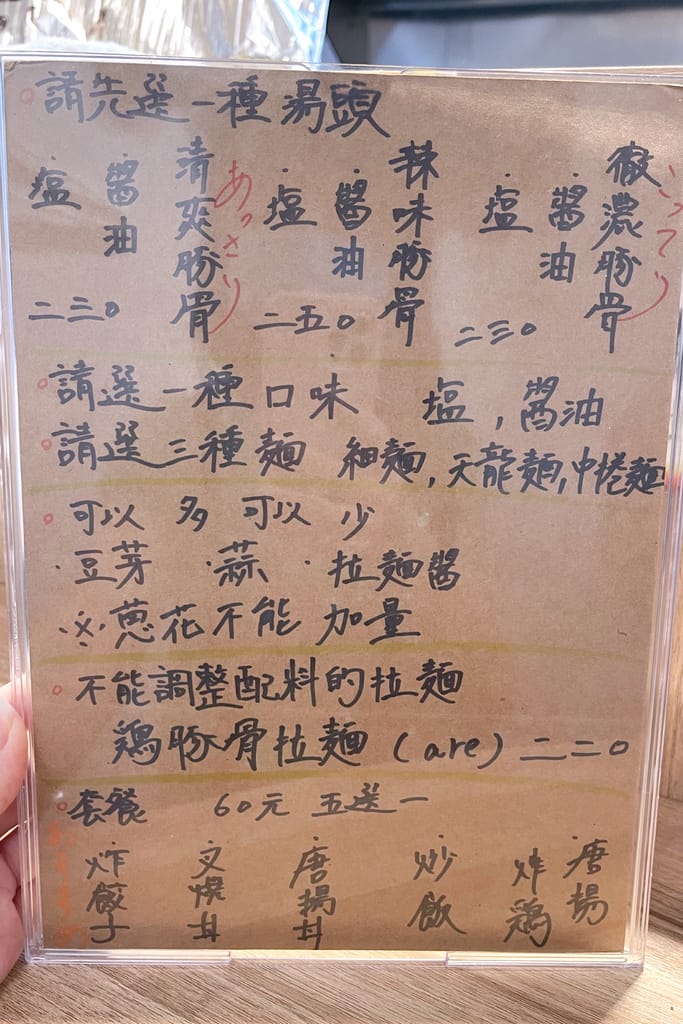 請先選一種湯頭
徹濃豚骨
こってり
・醬油
・塩
二三〇
辣味豚骨
・醬油
・塩
二五〇
清爽豚骨
あっさり
・醬油
・塩
二三〇
請選一種口味 塩,醬油
請選三種麵 細麵,天龍麵,中捲麵
可以多可以少
・豆芽 ・蒜 ・拉麵醬
※蔥花不能加量
不能調整配料的拉麵
鶏豚骨拉麵(are)二二〇
套餐 60元 五選一
・唐揚
炸鶏
・炒飯
・唐揚丼
・叉燒丼
・炸餃子